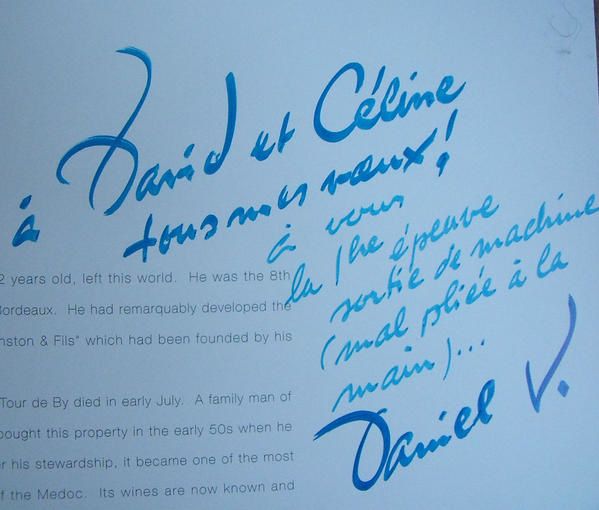 à David et Céline
tous mes vœux!
à vous
la 1re épeuve
sortie de machine
(mal pliée à la
main)...
Daniel V.
2 years old, left this world. He was the 8th
Bordeaux. He had remarquably developed the
nston & Fils" which had been founded by his
Tour de By died in early July. A family man of
bought this property in the early 50s when he
r his stewardship, it became one of the most
f the Medoc. Its wines are now known and